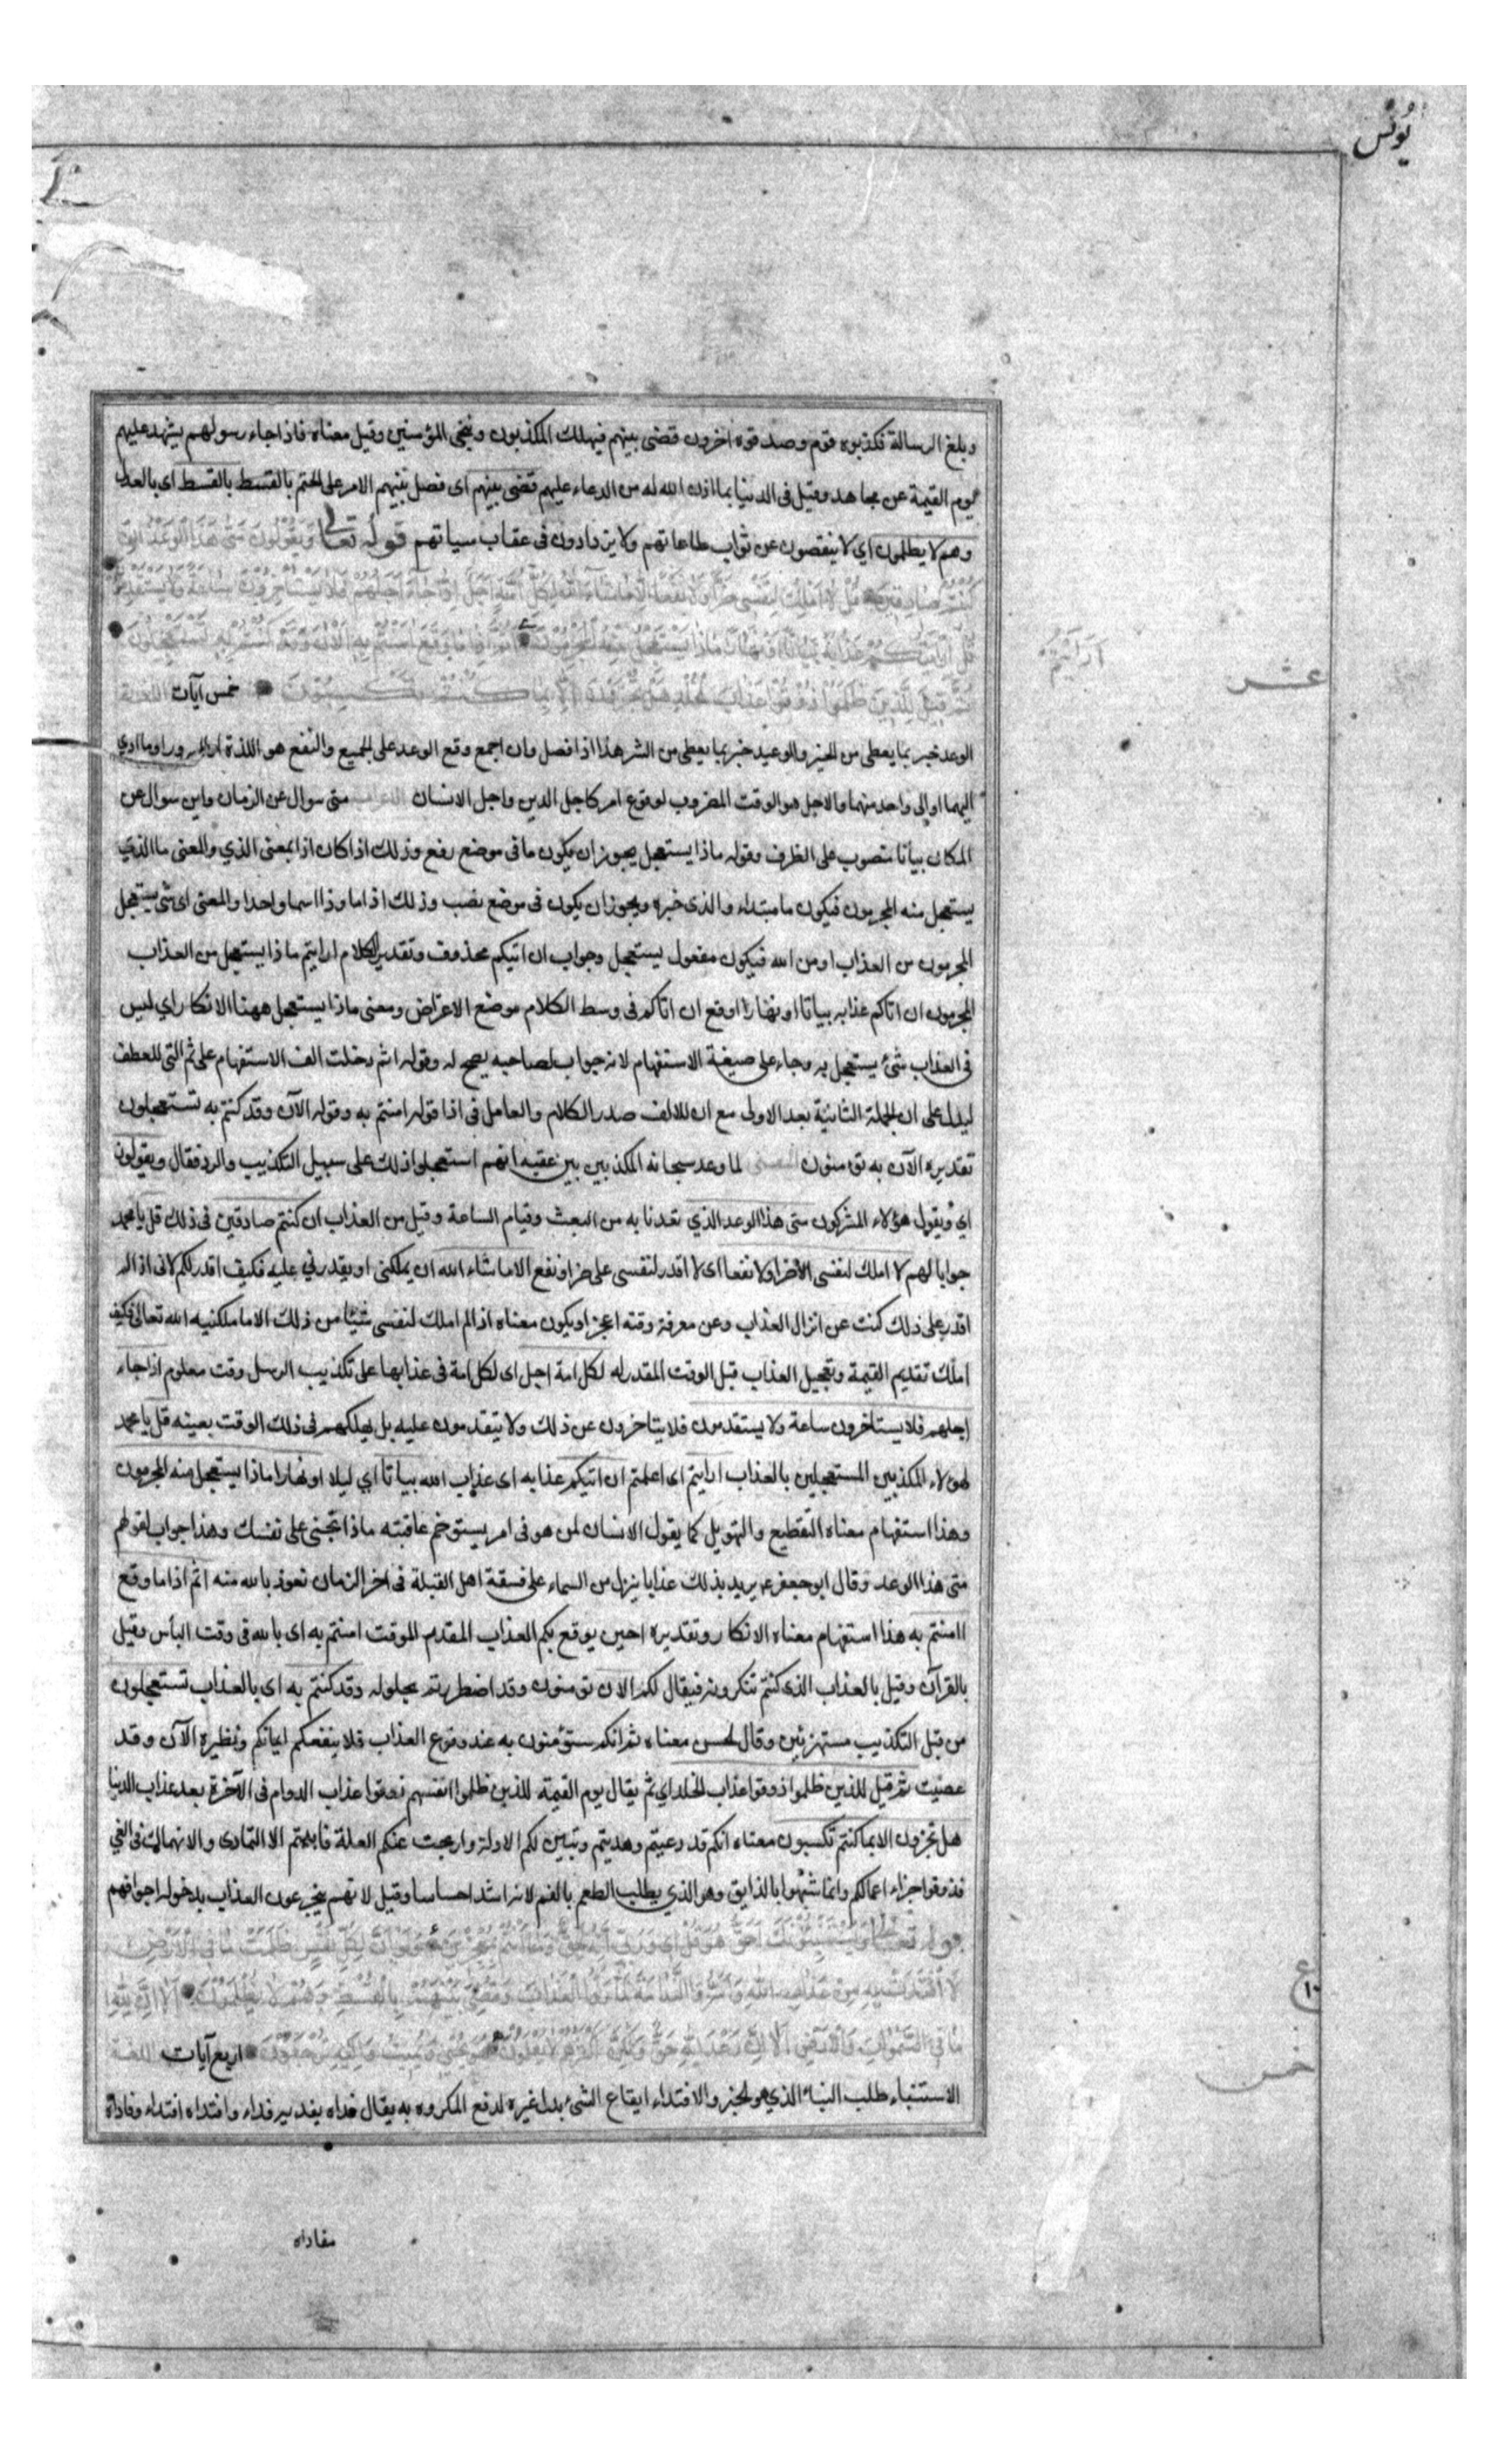 يُونُس
وبلغ الرسالة فكذبوه قوم وصدقوه اخرون قضى بينهم فيهلك المكذبون وينجى المؤمنين وقيل معناه فاذا جاء رسولهم يشهد عليهم
يوم القيمة عن مجاهد وقيل فى الدنيا بما اذن الله له من الدعاء عليهم قضى بينهم اى فصل بينهم الامر على الحتم بالقسط بالقسط اى بالعدل
وهم لا يظلمون اي لا ينقصون عن ثواب طاعاتهم ولا يزدادون فى عقاب سياتهم قوله تعالى وَيَقُولُونَ مَتى هذَا الوَعْدُ اِن
كُنْتُمْ صادِقينَ قُلْ لا اَمْلِكُ لِنَفْسى ضَرًّا وَلا نَفْعًا اِلّا ما شاءَ اللهُ لِكُلِّ اُمَّةٍ اَجَلٌ اِذا جاءَ اَجَلُهُمْ فَلا يَسْتَأْخِرُونَ ساعَةً وَلا يَسْتَقْدِمُونَ
قُلْ اَرَاَيْتُمْ اِنْ اَتيكُمْ عَذابُهُ بَياتًا اَوْ نَهارًا ماذا يَسْتَعْجِلُ مِنْهُ الْمُجْرِمُونَ اَثُمَّ اِذا ما وَقَعَ امَنْتُمْ بِهِ آلْانَ وَقَدْ كُنْتُمْ بِهِ تَسْتَعْجِلُونَ
ارايتم
عشر
ثُمَّ قيلَ لِلَّذينَ ظَلَمُوا ذُوقُوا عَذابَ الْخُلْدِ هَلْ تُجْزَوْنَ اِلّا بِما كُنْتُمْ تَكْسِبُونَ خمس آيات اللغة
الوعد خبر بما يعطى من الخير والوعيد خبر بما يعطى من الشر هذا اذا فصل وان اجمع وقع الوعد على الجميع والنفع هو اللذة او السرور او ما ادي
اليهما او الى واحد منهما والاجل هو الوقت المضروب لوقوع امر كاجل الدين واجل الانسان الاعراب متى سوال عن الزمان واين سوال عن
المكان بياتا منصوب على الظرف وقوله ماذا يستعجل يجوز ان يكون ما فى موضع رفع وذلك اذا كان اذا بمعنى الذي والمعنى ما الذي
يستعجل منه المجرمون فيكون ما مبتداء والذى خبره ويجوز ان يكون فى موضع نصب وذلك اذا ما وذا اسما واحدا والمعنى اى شى يستعجل
المجرمون من العذاب او من الله فيكون مفعول يستعجل وجواب ان اتيكم محذوف وتقدير الكلام ارايتم ماذا يستعجل من العذاب
المجرمون ان اتاكم عذابه بياتا او نهارا اوقع ان اتاكم فى وسط الكلام موضع الاعتراض ومعنى ماذا يستعجل ههنا الانكار اي ليس
فى العذاب شئ يستعجل به وجاء على صيغة الاستفهام لانه جواب لصاحبه يصح له وقوله اثم دخلت الف الاستفهام على ثم التى للعطف
ليدل على ان الجملة الثانية بعد الاولى مع ان للالف صدر الكلام والعامل فى اذا قوله امنتم به وقوله الآن وقد كنتم به تستعجلون
تقديره الآن به تومنون المعنى لما وعد سبحانه المكذبين بين عقبه انهم استعجلوا ذلك على سبيل التكذيب والرد فقال ويقولون
اي ويقول هؤلاء المشركون متى هذا الوعد الذي تعدنا به من البعث وقيام الساعة وقيل من العذاب ان كنتم صادقين فى ذلك قل يا محمد
جوابا لهم لا املك لنفسى ضرا ولا نفعا اى لا اقدر لنفسى على ضر او نفع الا ما شاء الله ان يملكنى او يقدرني عليه فكيف اقدر لكم لانى اذا لم
اقدر على ذلك كنت عن انزال العذاب وعن معرفة وقته اعجز او يكون معناه اذا لم املك لنفسى شيئا من ذلك الا ما ملكنيه الله تعالى فكيف
املك تقديم القيمة وتعجيل العذاب قبل الوقت المقدر له لكل امة اجل اى لكل امة فى عذابها على تكذيب الرسل وقت معلوم اذا جاء
اجلهم فلا يستاخرون ساعة ولا يستقدمون فلا يتاخرون عن ذلك ولا يتقدمون عليه بل يهلكهم فى ذلك الوقت بعينه قل يا محمد
لهولاء المكذبين المستعجلين بالعذاب ارايتم اى اعلمتم ان اتيكم عذابه اى عذاب الله بياتا اي ليلا او نهارا ماذا يستعجل منه المجرمون
وهذا استفهام معناه التفظيع والتهويل كما يقول الانسان لمن هو فى امر يستوخم عاقبته ماذا تجنى على نفسك وهذا جواب لقولهم
متى هذا الوعد وقال ابو جعفر ع يريد بذلك عذابا ينزل من السماء على فسقة اهل القبلة فى اخر الزمان نعوذ بالله منه اثم اذا ما وقع
اامنتم به هذا استفهام معناه الانكار وتقديره احين يوقع بكم العذاب المقدم الموقت امنتم به اى بالله فى وقت الباس وقيل
بالقرآن وقيل بالعذاب الذى كنتم تنكرونه فيقال لكم الان تومنون وقد اضطررتم بحلوله وقد كنتم به اى بالعذاب تستعجلون
من قبل التكذيب مستهزئين وقال الحسن معناه ثم انكم ستؤمنون به عند وقوع العذاب فلا ينفعكم ايمانكم ونظيره الآن وقد
عصيت ثم قيل للذين ظلموا ذوقوا عذاب الخلد اي ثم يقال يوم القيمة للذين ظلموا انفسهم ذوقوا عذاب الدوام فى الآخرة بعد عذاب الدنيا
هل تجزون الا بما كنتم تكسبون معناه انكم قد دعيتم وهديتم وتبين لكم الادلة وازيحت عنكم العلة فابيتم الا التمادى والانهماك فى الغي
فذوقوا جزاء اعمالكم وانما شبهوا بالذايق وهو الذي يطلب الطعم بالفم لانه اشد احساسا وقيل لانهم يتجرعون العذاب بدخوله اجوافهم
قوله تعالى وَيَسْتَنْبِئُونَكَ اَحَقٌّ هُوَ قُلْ اى وَرَبّى اِنَّهُ لَحَقٌّ وَما اَنْتُمْ بِمُعْجِزينَ وَلَوْ اَنَّ لِكُلِّ نَفْسٍ ظَلَمَتْ ما فِى الْاَرْضِ
لَافْتَدَتْ بِهِ وَاَسَرُّوا النَّدامَةَ لَمّا رَاَوُا الْعَذابَ وَقُضِىَ بَيْنَهُمْ بِالْقِسْطِ وَهُمْ لا يُظْلَمُونَ اَلا اِنَّ لِلهِ
ع ١٠
ما فِى السَّمواتِ وَالْاَرْضِ اَلا اِنَّ وَعْدَ اللهِ حَقٌّ وَلكِنَّ اَكْثَرَهُمْ لا يَعْلَمُونَ هُوَ يُحْيى وَيُميتُ وَاِلَيْهِ تُرْجَعُونَ اربع آيات اللغة
خمس
الاستنباء طلب النباء الذي هو الخبر والافتداء ايقاع الشئ بدل غيره لدفع المكروه به يقال فداه يفديه فداء وافتداه افتداء وفاداه
مفاداه